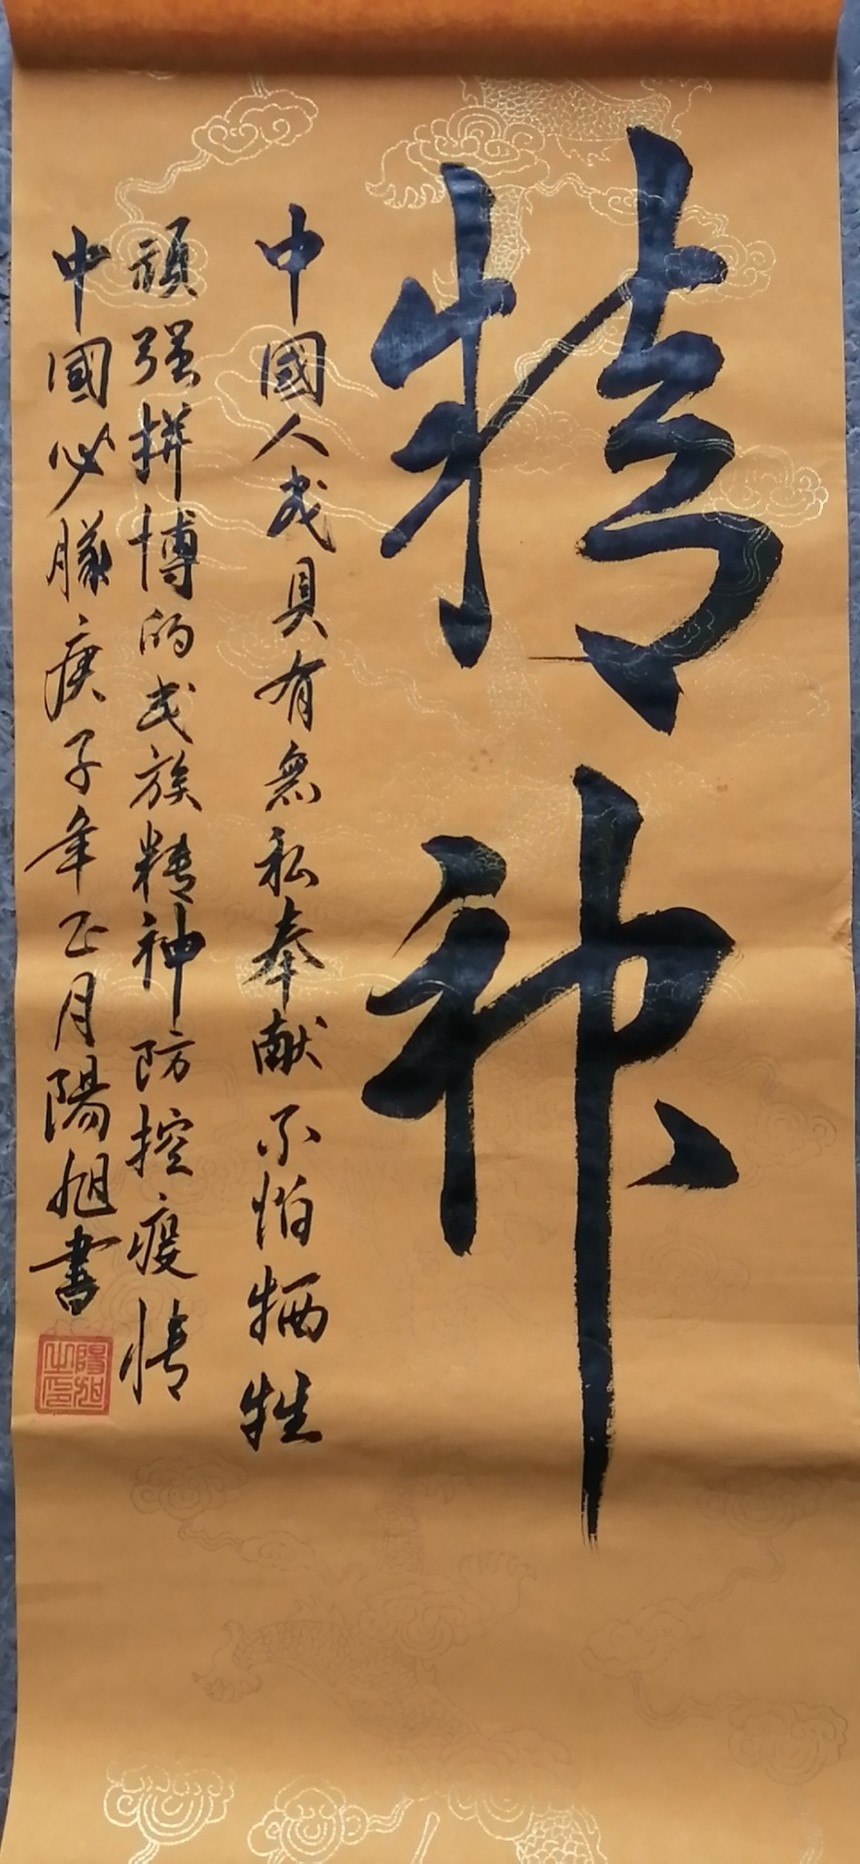 精神
中國人民具有無私奉献不怕牺牲
頑强拼博的民族精神防控疫情
中國必勝庚子年正月陽旭書
陽旭之印